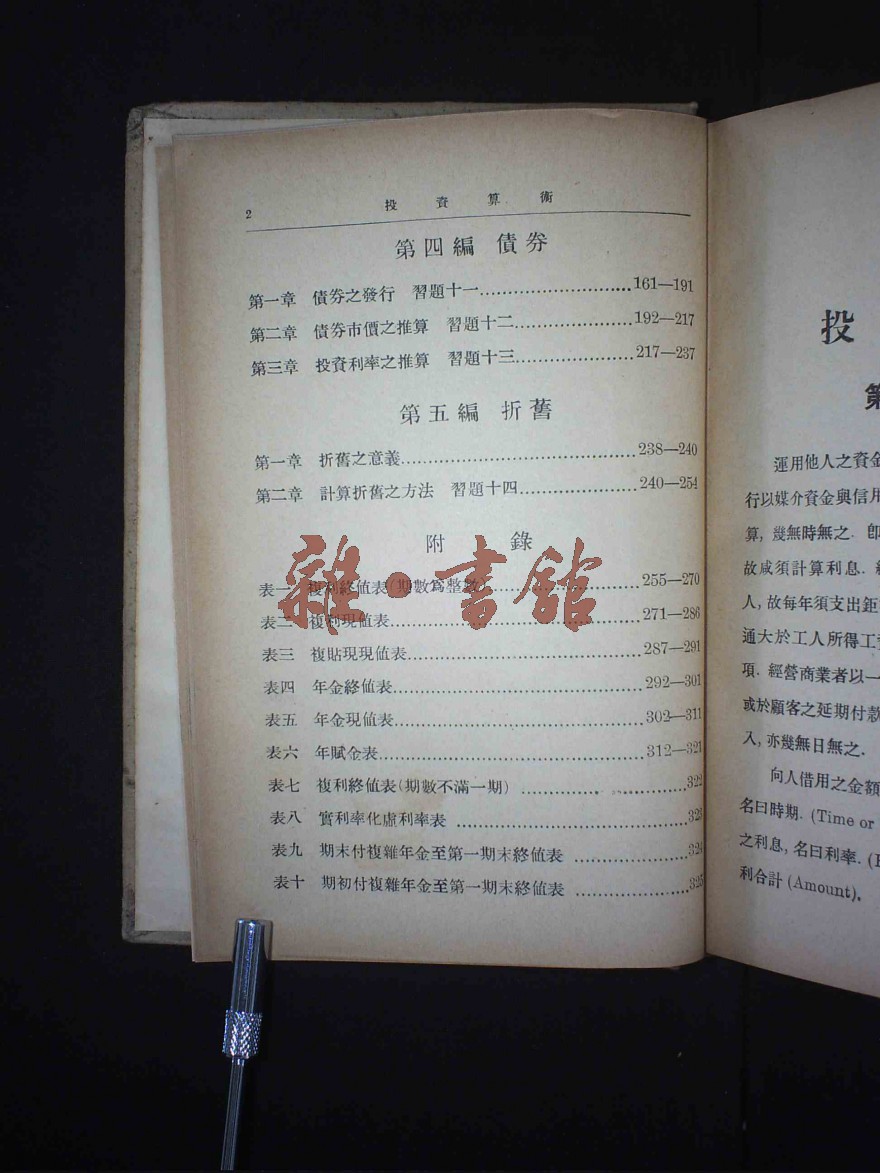 2 投資算術
第四編 債券
第一章 債券之發行 習題十一..............................161—191
第二章 債券市價之推算 習題十二........................192—217
第三章 投資利率之推算 習題十三........................217—237
第五編 折舊
第一章 折舊之意義..............................238—240
第二章 計算折舊之方法 習題十四........................240—254
附錄
表一 複利終値表(期數爲整數)..............................255—270
表二 複利現値表..............................271—286
表三 複貼現現値表..............................287—291
表四 年金終値表..............................292—301
表五 年金現値表..............................302—311
表六 年賦金表..............................312—321
表七 複利終値表(期數不滿一期)..............................322
表八 實利率化虛利率表..............................323
表九 期末付複雜年金至第一期末終値表....................324
表十 期初付複雜年金至第一期末終値表....................325
雜·書館
投
第
運用他人之資金
行以媒介資金與信用
算, 幾無時無之. 卽
故咸須計算利息.
人, 故每年須支出鉅
通大於工人所得工
項. 經營商業者以一
或於顧客之延期付款
入, 亦幾無日無之.
向人借用之金額
名曰時期. (Time or
之利息, 名曰利率. (
利合計 (Amount).